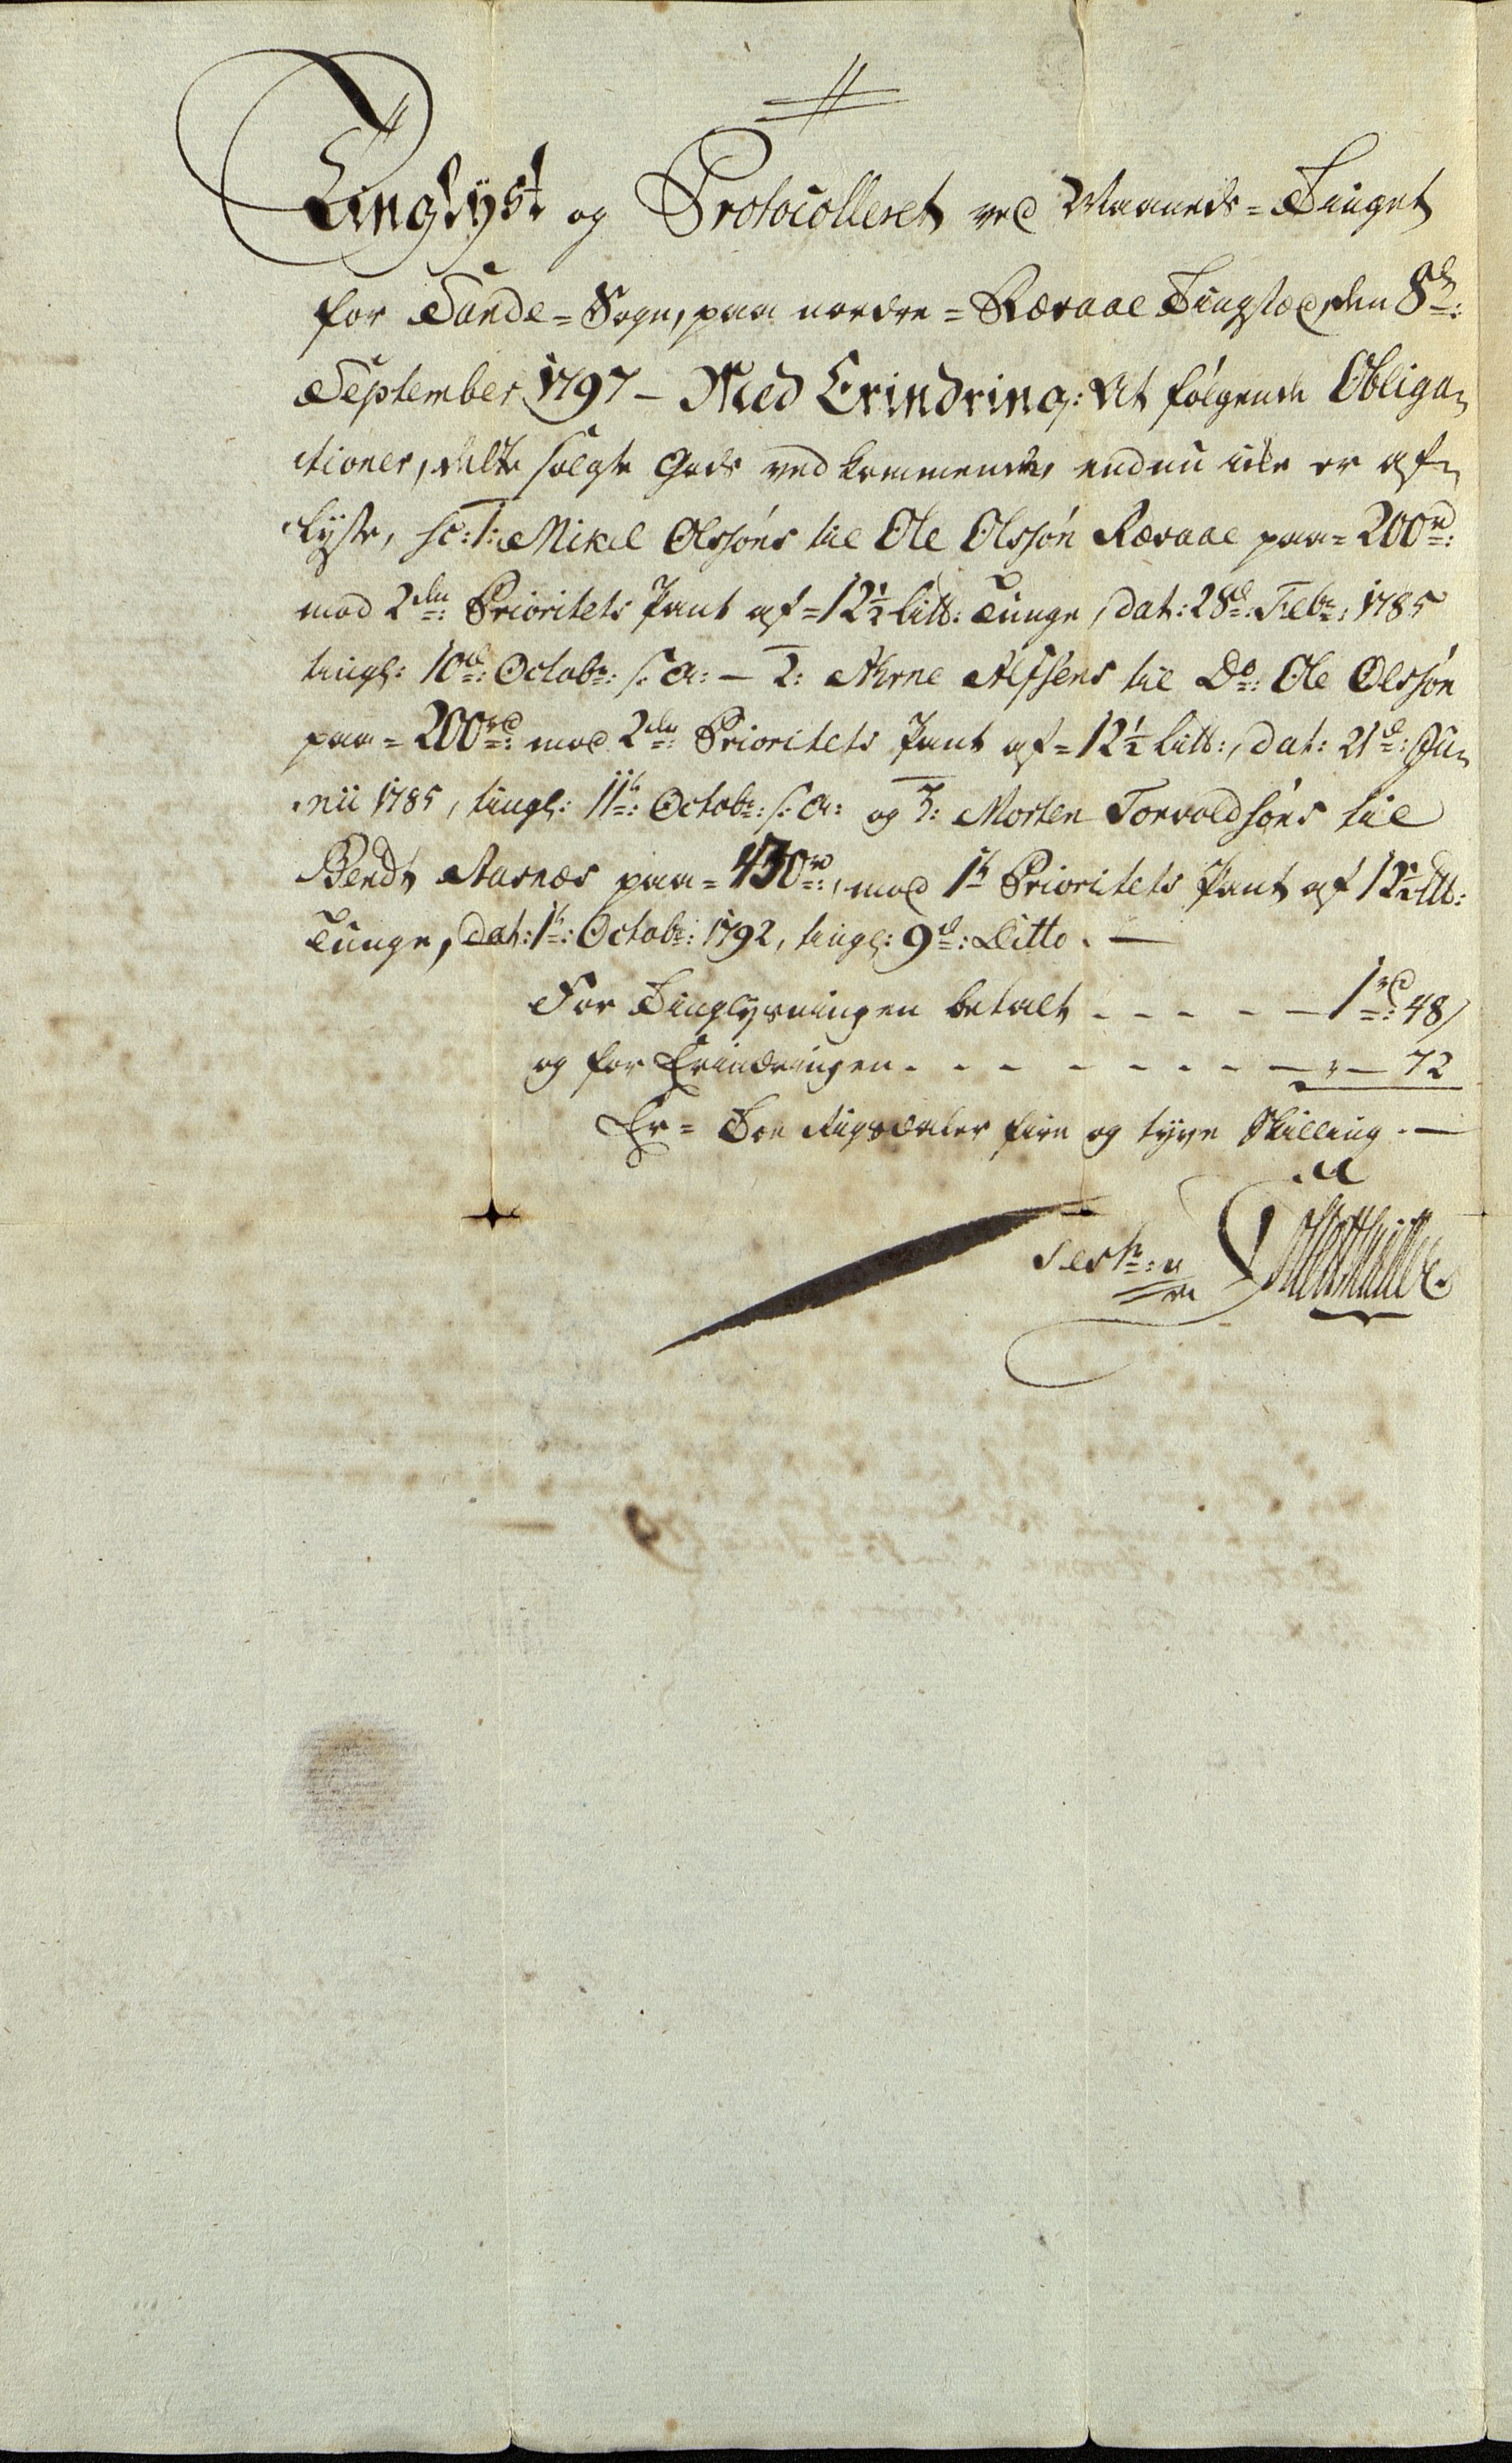 Tinglÿst og Protocolleret ved Maaneds=Tinget
for Sande=Sogn, paa nordre=Rævaae Tingstæd, den 8de:
September 1797 – Med Erindring: At følgende Obliga„
tioner, dette solgte Gods ved kommende, endnu icke er af„
lÿste, sc: 1: Mikel Olssøns til Ole Olssøn Rævaae paa=200rd:
mod 2den: Prioritets Pant af=12½ Litt: Tunge, dat: 28de: Febr: 1785
tingl: 10de: Octobr: s: a: – 2: Arne Alfsens til Do: Ole Olssøn
paa=200rd: mod 2den Prioritets Pant af=12½ Litt:, dat: 21de: Ju„
nii 1785, tingl: 11te: Octobr: s: a: og 3: Morten Torvoldsøns til
Bendt Aasnæs paa=430rd:, mod 1te Prioritets Pant af 12½ Litt:
Tunge, dat: 1te: Octobr: 1792, tingl: 9de: Ditto. —
For Tinglysningen betalt - - - - — 1rd: 48/
og for Erindringen - - - - - - - - — „ — 72
Er= Toe Rigsdaler fire og tÿve Skilling. —